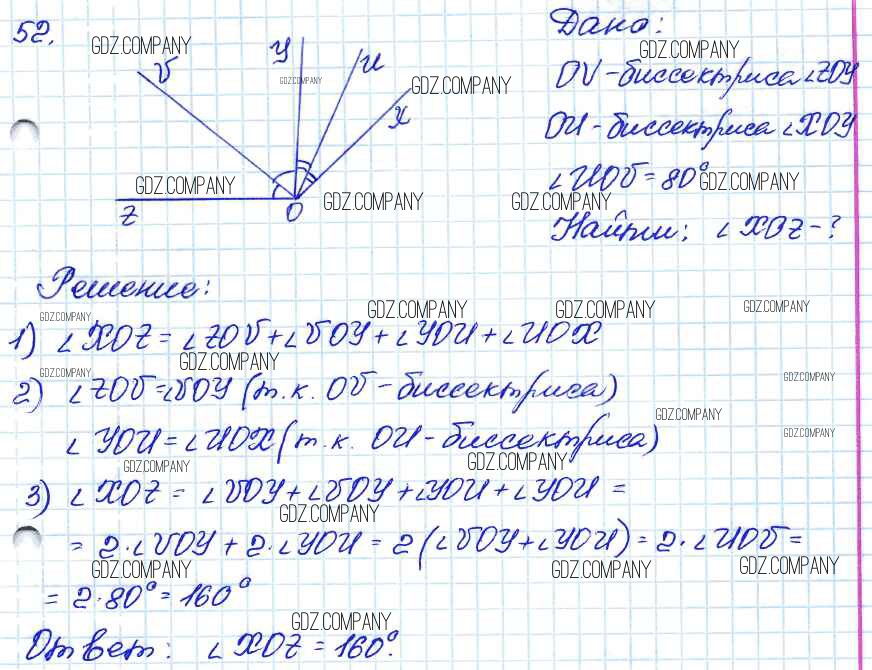 52.
GDZ.COMPANY
Дано:
GDZ.COMPANY
V
У
GDZ.COMPANY
U
GDZ.COMPANY
OV - биссектриса ∠ZOY
X
OU - биссектриса ∠XOY
GDZ.COMPANY
∠UOV = 80° GDZ.COMPANY
Z
O
GDZ.COMPANY
GDZ.COMPANY
Найти: ∠XOZ - ?
Решение:
GDZ.COMPANY GDZ.COMPANY GDZ.COMPANY GDZ.COMPANY
1) ∠XOZ = ∠ZOV + ∠VOY + ∠YOU + ∠UOX
GDZ.COMPANY
GDZ.COMPANY GDZ.COMPANY
2) ∠ZOV = ∠VOY (т.к. OV - биссектриса)
GDZ.COMPANY
∠YOU = ∠UOX (т.к. OU - биссектриса)
GDZ.COMPANY
GDZ.COMPANY GDZ.COMPANY
3) ∠XOZ = ∠VOY + ∠VOY + ∠YOU + ∠YOU =
GDZ.COMPANY
= 2·∠VOY + 2·∠YOU = 2(∠VOY + ∠YOU) = 2·∠UOV =
GDZ.COMPANY GDZ.COMPANY GDZ.COMPANY
= 2·80° = 160°
GDZ.COMPANY
Ответ: ∠XOZ = 160°.